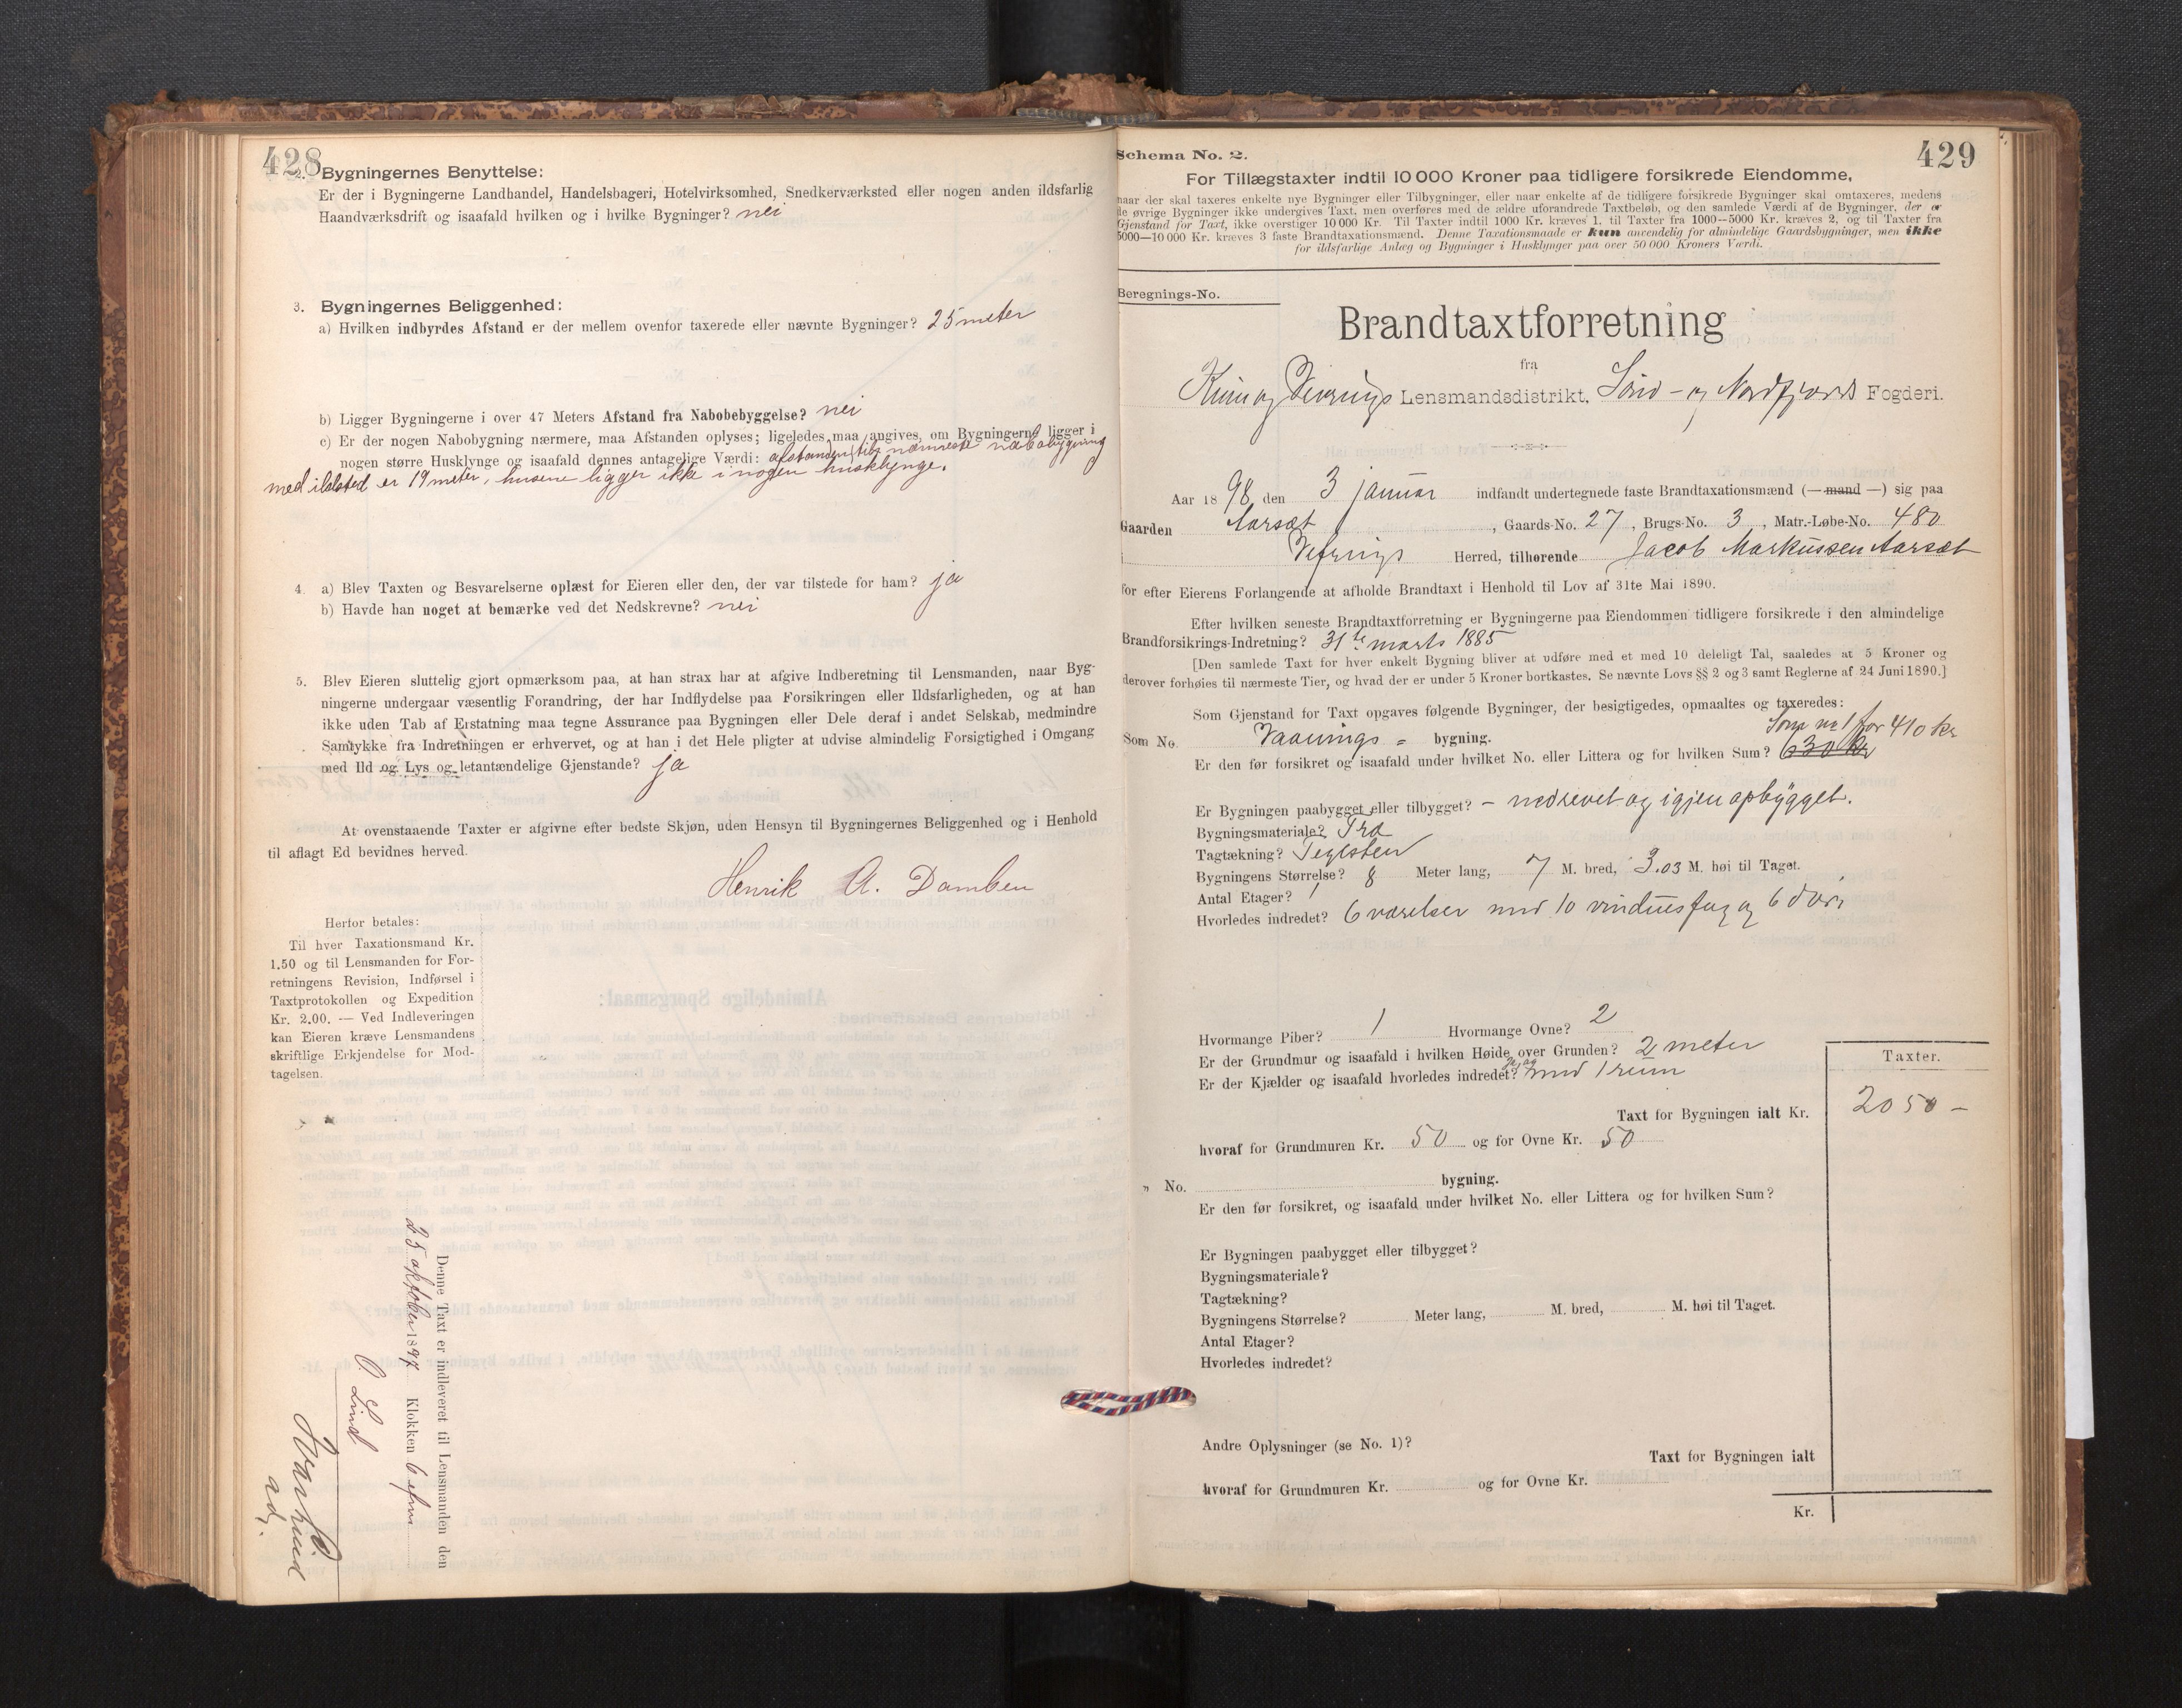 428
2. Bygningernes Benyttelse:
Er der i Bygningerne Landhandel, Handelsbageri, Hotelvirksomhed, Snedkerværksted eller nogen anden ildsfarlig
Haandværksdrift og isaafald hvilken og i hvilke Bygninger? nei
3. Bygningernes Beliggenhed:
a) Hvilken indbyrdes Afstand er der mellem ovenfor taxerede eller nævnte Bygninger? 25 meter
b) Ligger Bygningerne i over 47 Meters Afstand fra Nabobebyggelse? nei
c) Er der nogen Nabobygning nærmere, maa Afstanden oplyses; ligeledes maa angives, om Bygningerne ligger i
nogen større Husklynge og isaafald dennes antagelige Værdi: afstanden til nærmeste nabobygning
med ildsted er 19 meter, husene ligger ikke i nogen husklynge.
4. a) Blev Taxten og Besvarelserne oplæst for Eieren eller den, der var tilstede for ham? ja
b) Havde han noget at bemærke ved det Nedskrevne? nei
5. Blev Eieren sluttelig gjort opmærksom paa, at han strax har at afgive Indberetning til Lensmanden, naar Byg-
ningerne undergaar væsentlig Forandring, der har Indflydelse paa Forsikringen eller Ildsfarligheden, og at han
ikke uden Tab af Erstatning maa tegne Assurance paa Bygningen eller Dele deraf i andet Selskab, medmindre
Samtykke fra Indretningen er erhvervet, og at han i det Hele pligter at udvise almindelig Forsigtighed i Omgang
med Ild og Lys og letantændelige Gjenstande? ja
At ovenstaaende Taxter er afgivne efter bedste Skjøn, uden Hensyn til Bygningernes Beliggenhed og i Henhold
til aflagt Ed bevidnes herved.
Henrik A. Domben
Herfor betales:
Til hver Taxationsmand Kr.
1.50 og til Lensmanden for For-
retningens Revision, Indførsel i
Taxtprotokollen og Expedition
Kr. 2.00. — Ved Indleveringen
kan Eieren kræve Lensmandens
skriftlige Erkjendelse for Mod-
tagelsen.
Denne Taxt er indleveret til Lensmanden den
25 oktober 1897 Klokken 6 efm
O. Lind
429
Schema No. 2.
For Tillægstaxter indtil 10 000 Kroner paa tidligere forsikrede Eiendomme,
naar der skal taxeres enkelte nye Bygninger eller Tilbygninger, eller naar enkelte af de tidligere forsikrede Bygninger skal omtaxeres, medens
de øvrige Bygninger ikke undergives Taxt, men overføres med de ældre uforandrede Taxtbeløb, og den samlede Værdi af de Bygninger, der er
Gjenstand for Taxt, ikke overstiger 10 000 Kr. Til Taxter indtil 1000 Kr. kræves 1, til Taxter fra 1000—5000 Kr. kræves 2, og til Taxter fra
5000—10 000 Kr. kræves 3 faste Brandtaxationsmænd. Denne Taxationsmaade er kun anvendelig for almindelige Gaardsbygninger, men ikke
for ildsfarlige Anlæg og Bygninger i Husklynger paa over 50 000 Kroners Værdi.
Beregnings-No.
Brandtaxtforretning
fra
Kinn og Vevrings Lensmandsdistrikt, Sønd- og Nordfjords Fogderi.
Aar 1898 den 3 januar indfandt undertegnede faste Brandtaxationsmænd (—mand —) sig paa
Gaarden Aarsæt, Gaards-No. 27, Brugs-No. 3, Matr.-Løbe-No. 480
Vefrings Herred, tilhørende Jacob Markussen Aarsæt
for efter Eierens Forlangende at afholde Brandtaxt i Henhold til Lov af 31te Mai 1890.
Efter hvilken seneste Brandtaxtforretning er Bygningerne paa Eiendommen tidligere forsikrede i den almindelige
Brandforsikrings-Indretning? 31te marts 1885
[Den samlede Taxt for hver enkelt Bygning bliver at udføre med et med 10 deleligt Tal, saaledes at 5 Kroner og
derover forhøies til nærmeste Tier, og hvad der er under 5 Kroner bortkastes. Se nævnte Lovs §§ 2 og 3 samt Reglerne af 24 Juni 1890.]
Som Gjenstand for Taxt opgaves følgende Bygninger, der besigtigedes, opmaaltes og taxeredes:
Som No. Vaanings- bygning. Som no 1 for 410 kr
Er den før forsikret og isaafald under hvilket No. eller Littera og for hvilken Sum? 630 Kr
Er Bygningen paabygget eller tilbygget? – nedrevet og igjen opbygget.
Bygningsmateriale? Træ
Tagtækning? Teglsten
Bygningens Størrelse? 8 Meter lang, 7 M. bred, 3.03 M. høi til Taget.
Antal Etager? 1
Hvorledes indredet? 6 værelser med 10 vinduesfag og 6 døre
Hvormange Piber? 1 Hvormange Ovne? 2
Er der Grundmur og isaafald i hvilken Høide over Grunden? 2 meter
Er der Kjælder og isaafald hvorledes indredet? med 1 rum
Taxter.
Taxt for Bygningen ialt Kr. 2050 –
hvoraf for Grundmuren Kr. 50 og for Ovne Kr. 50
„ No. bygning.
Er den før forsikret, og isaafald under hvilket No. eller Littera og for hvilken Sum?
Er Bygningen paabygget eller tilbygget?
Bygningsmateriale?
Tagtækning?
Bygningens Størrelse? Meter lang, M. bred, M. høi til Taget.
Antal Etager?
Hvorledes indredet?
Andre Oplysninger (se No. 1)?
Taxt for Bygningen ialt
hvoraf for Grundmuren Kr. og for Ovne Kr.
Kr.